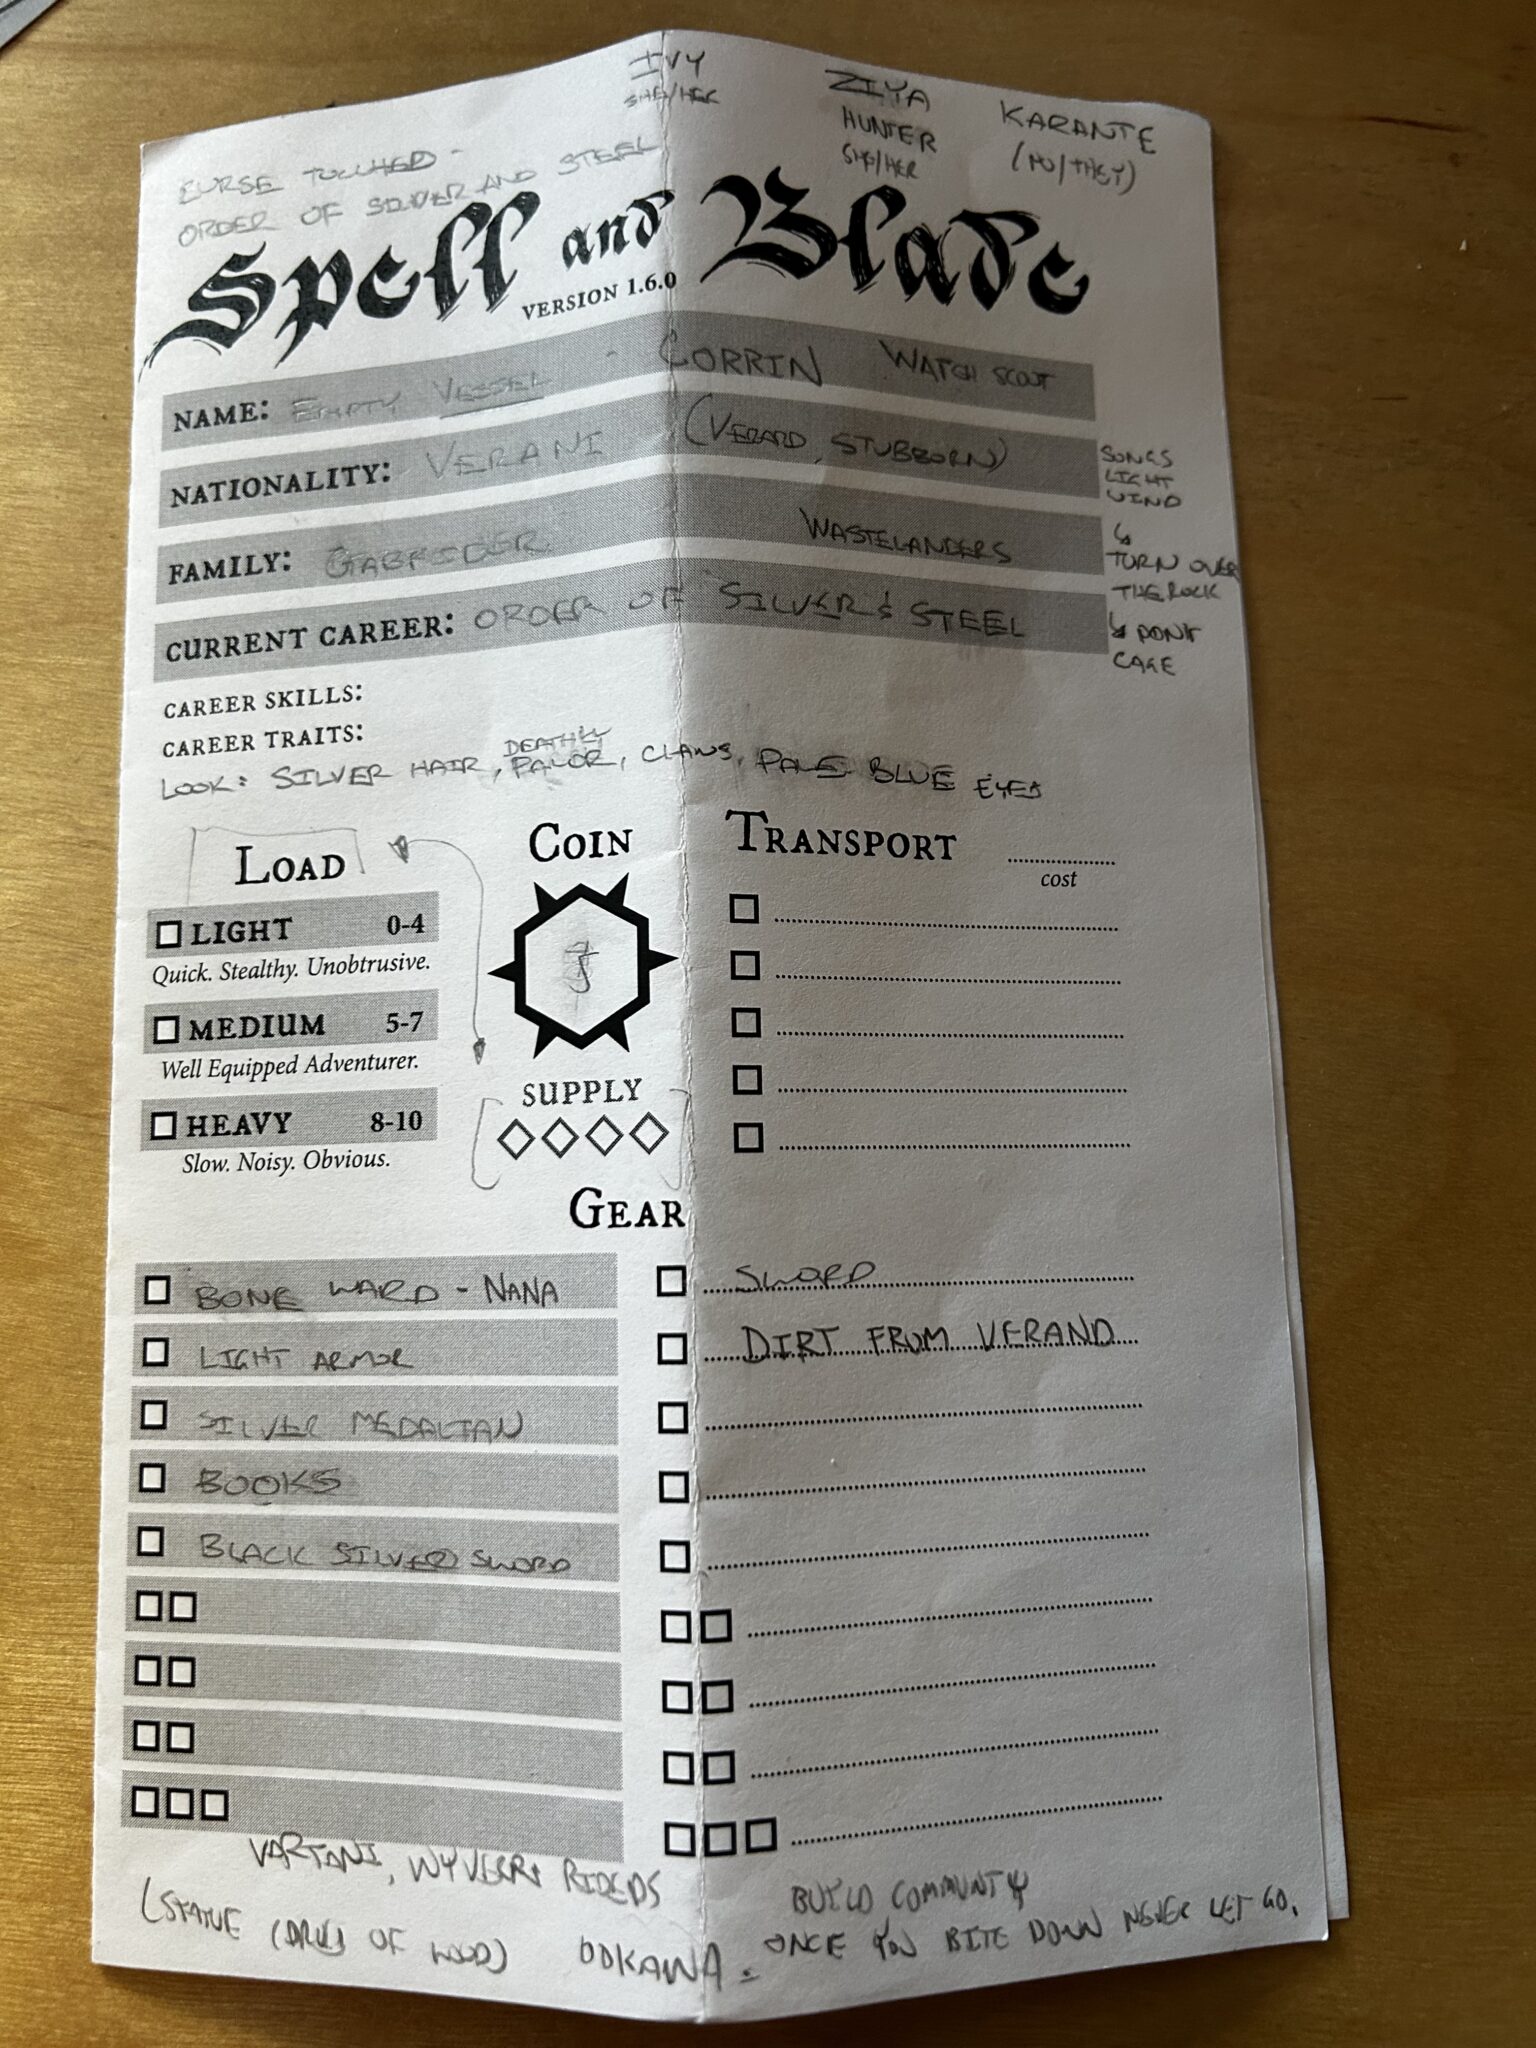 IVY
SHE/HER
ZIYA
HUNTER
SHE/HER
KARANTE
CURSE TOUCHED -
ORDER OF SILVER AND STEEL
Spell and Blade
VERSION 1.6.0
NAME: EMPTY VESSEL - CORRIN WATCH SCOUT
NATIONALITY: VERANI (VERARD, STUBBORN)
FAMILY: WASTELANDERS
CURRENT CAREER: ORDER OF SILVER & STEEL
SONGS
LIGHT
WIND
↳
TURN OVER
THE ROCK
↳ DON'T
CAGE
CAREER SKILLS:
CAREER TRAITS:
LOOK: SILVER HAIR, DEATHLY PALOR, CLAWS, PALE BLUE EYES
LOAD
LIGHT 0-4
Quick. Stealthy. Unobtrusive.
MEDIUM 5-7
Well Equipped Adventurer.
HEAVY 8-10
Slow. Noisy. Obvious.
COIN
SUPPLY
TRANSPORT
cost
GEAR
BONE WARD - NANA
LIGHT ARMOR
SILVER MEDALIAN
BOOKS
BLACK SILVER SWORD
SWORD
DIRT FROM VERAND
VARTANI, WYVERN RIDERS
(STATUE OF WOOD)
BUILD COMMUNITY
ODKAWA - ONCE YOU BITE DOWN NEVER LET GO.